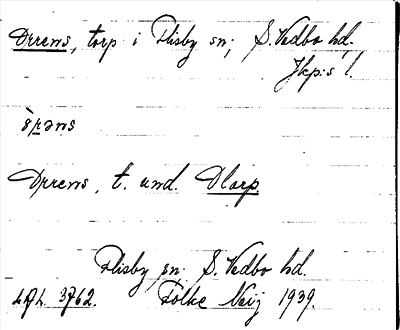 Örrens, torp i Flisby sn; S. Vedbo hd.
Jkp:s l.
Örrens, t. und. Olarp.
Flisby sn. S. Vedbo hd.
3762. Folke Neij 1939.